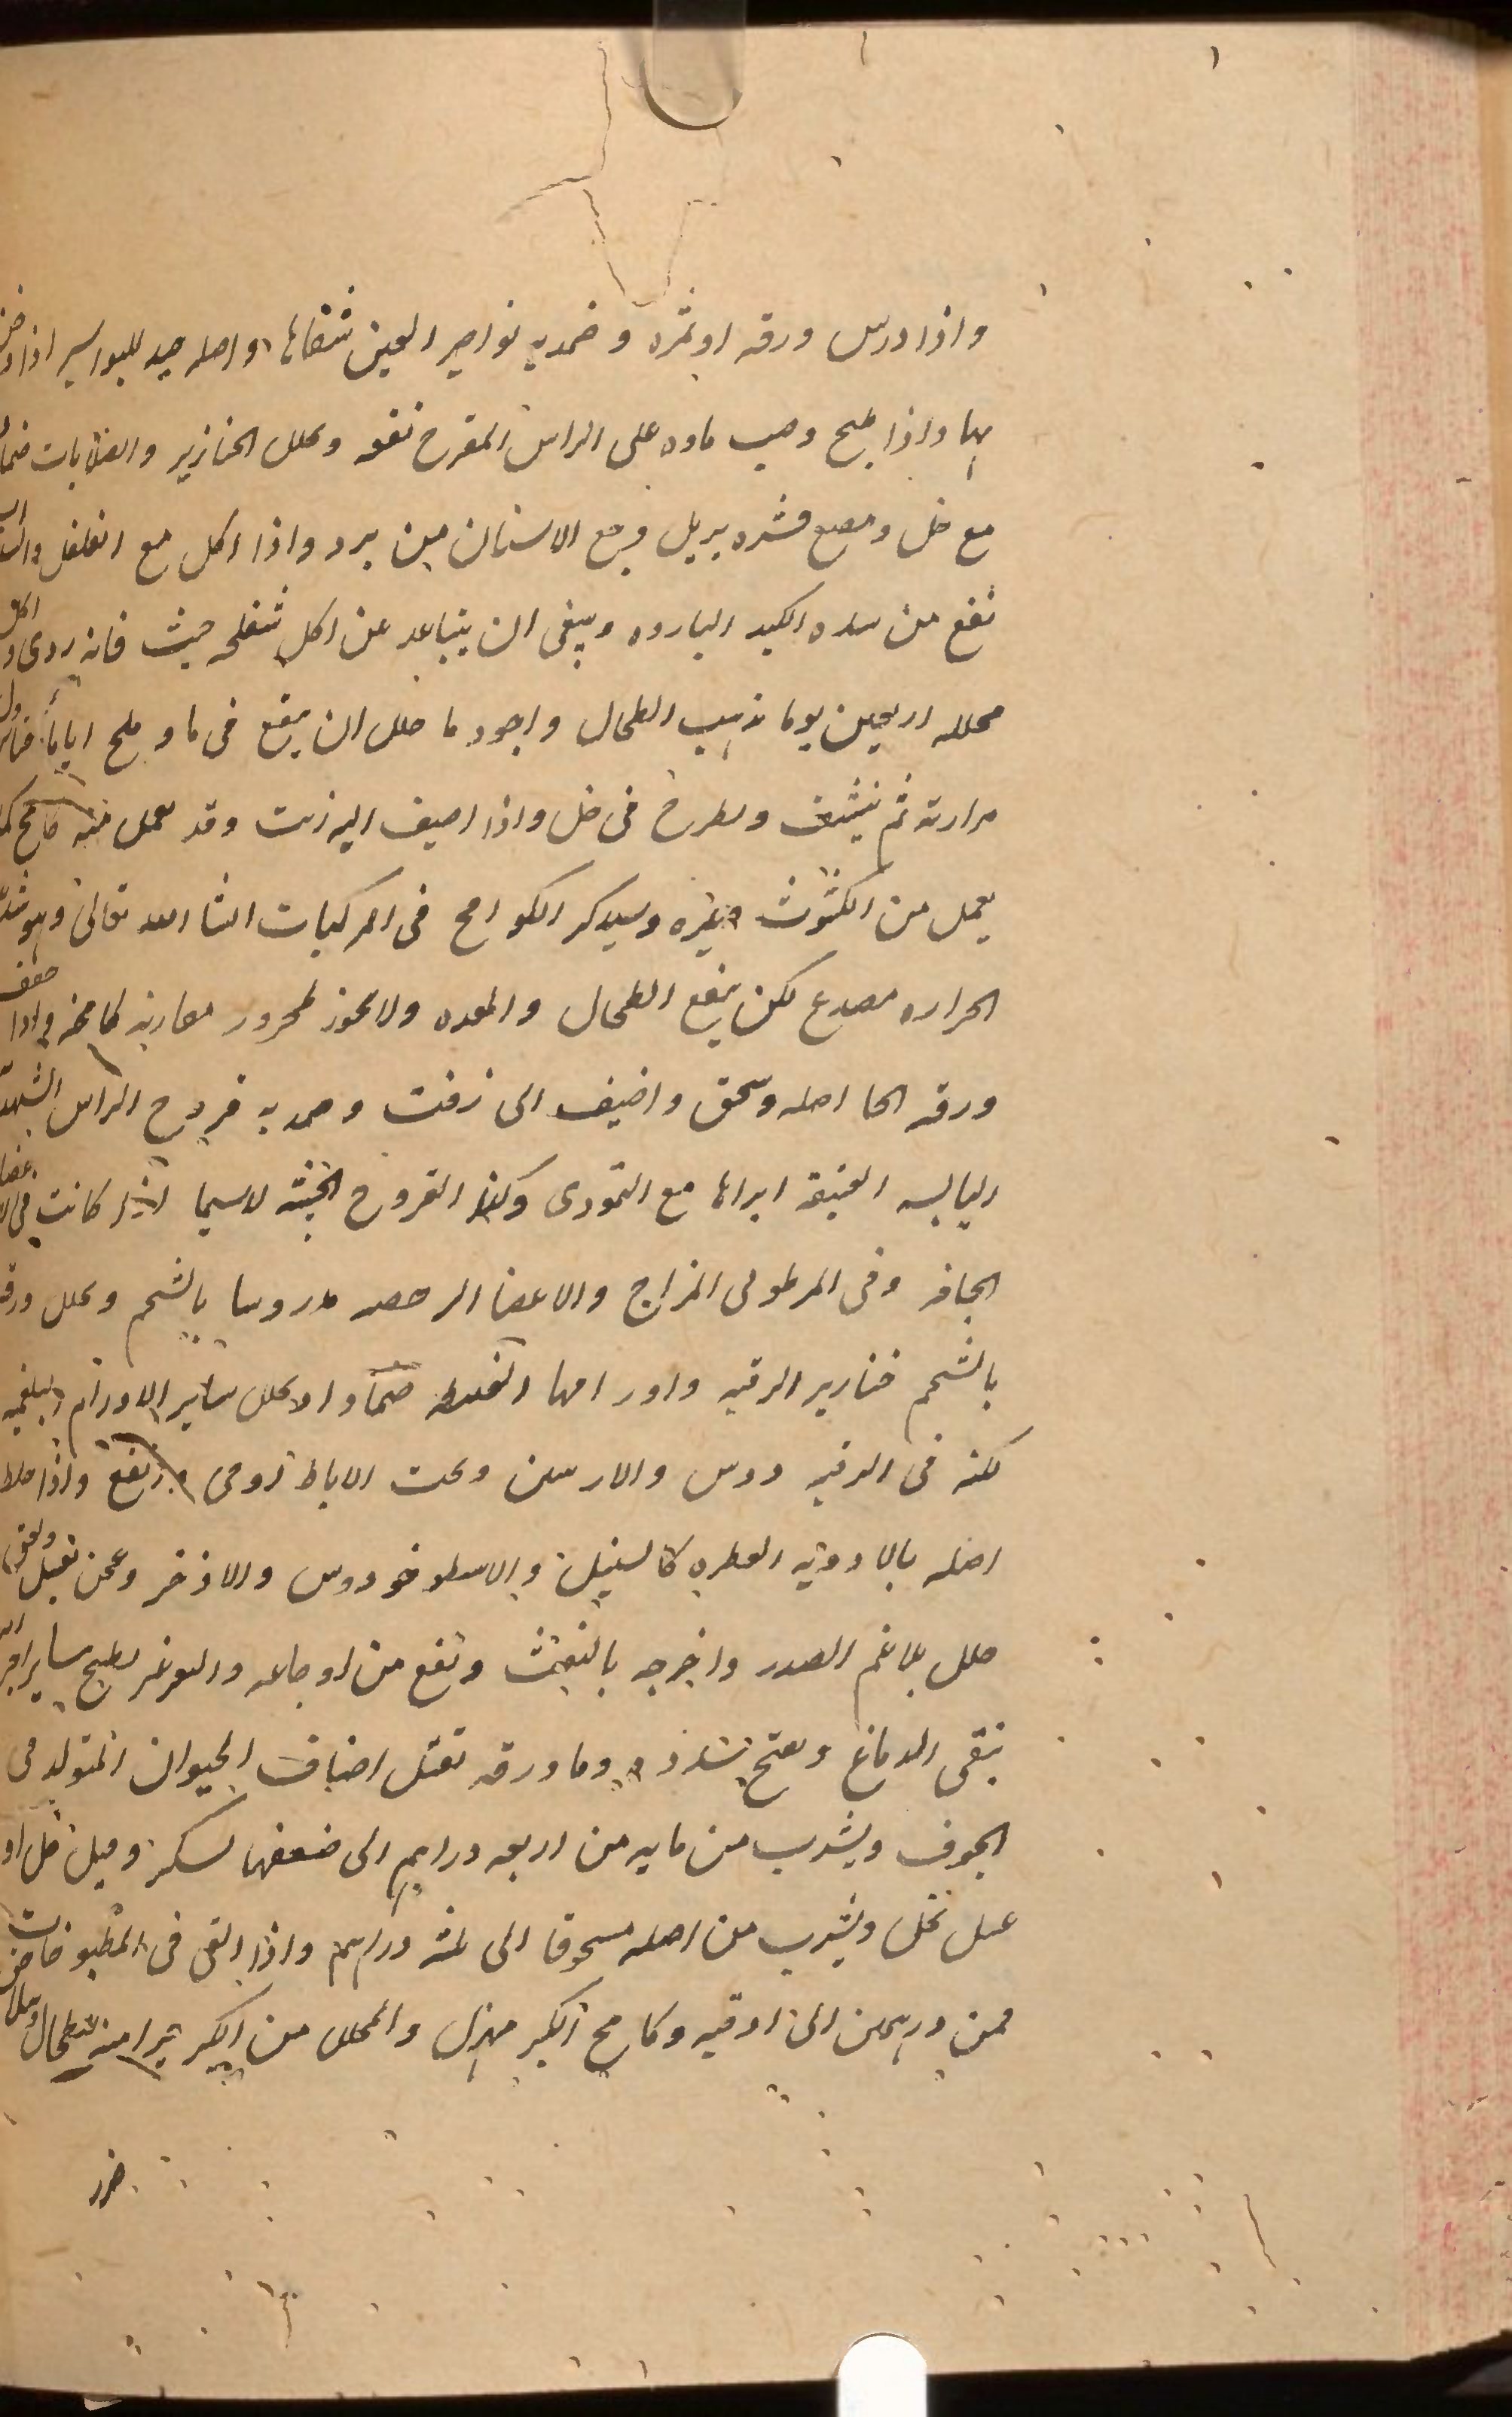 واذا درس ورقه او ثمره وضمد به نواصير العين شفاها واصله جيد للبواسير اذا
بها واذا طبخ وصب ماوه على الراس المقرح نفعه ويحلل الخنازير والصلابات ضمادا
مع خل ومضغ قشره يزيل وجع الاسنان من برد واذا اكل مع الفلفل والسداب
نفع من سدد الكبد البارده وينبغى ان يتباعد عن اكل حيث فانه ردى واكل
مخلله اربعين يوما يذهب الطحال واجود ما خلل ان ينقع فى ما وملح اياما
مرارته ثم ينشف ويطرح فى خل واذا اضيف اليه زيت وقد يعمل منه كامخ كما
يعمل من الكشوث وغيره وسيذكر الكوامخ فى المركبات انشا الله تعالى وهو شديد
الحراره مصدع لكن ينفع الطحال والمعده ولا يجوز لمحرور مقاربة كامخه واذا جفف
ورقه او اصله وسحق واضيف الى زفت وضمد به قروح الراس الشهديه
اليابسه العتيقه ابراها مع التمادى وكذا القروح الخبيثه لاسيما اذا كانت فى الاعضا
الجافه وفى المرطوبى المزاج والاعضا الرخصه مدروسا بالشحم ويحلل ورقه
بالشحم خنازير الرقبه واورامها الغليظه ضمادا ولا يحلل ساير الاورام البلغميه
لكنه فى الرقبه والاربيتين وتحت الاباط اقوى وانفع واذا خلط
اصله بالادويه العطره كالسنبل والاسطوخودوس والاذخر وعجن بعسل ولعق
حلل بلاغم الصدر واخرجه بالنفث ونفع من اوجاعه والتغرغر بطبيخ ساير اجزائه
ينقى الدماغ ويفتح سدده وما ورقه يقتل اصناف الحيوان المتولد فى
الجوف ويشرب من مايه من اربعه دراهم الى ضعفها بسكر وقليل خل او
عسل نحل ويشرب من اصله مسحوقا الى ثلثة دراهم واذا القى فى المطبوخات
فمن درهمين الى اوقيه وكامخ الكبر مهزل والمخلل من الكبر للطحال
ضرر